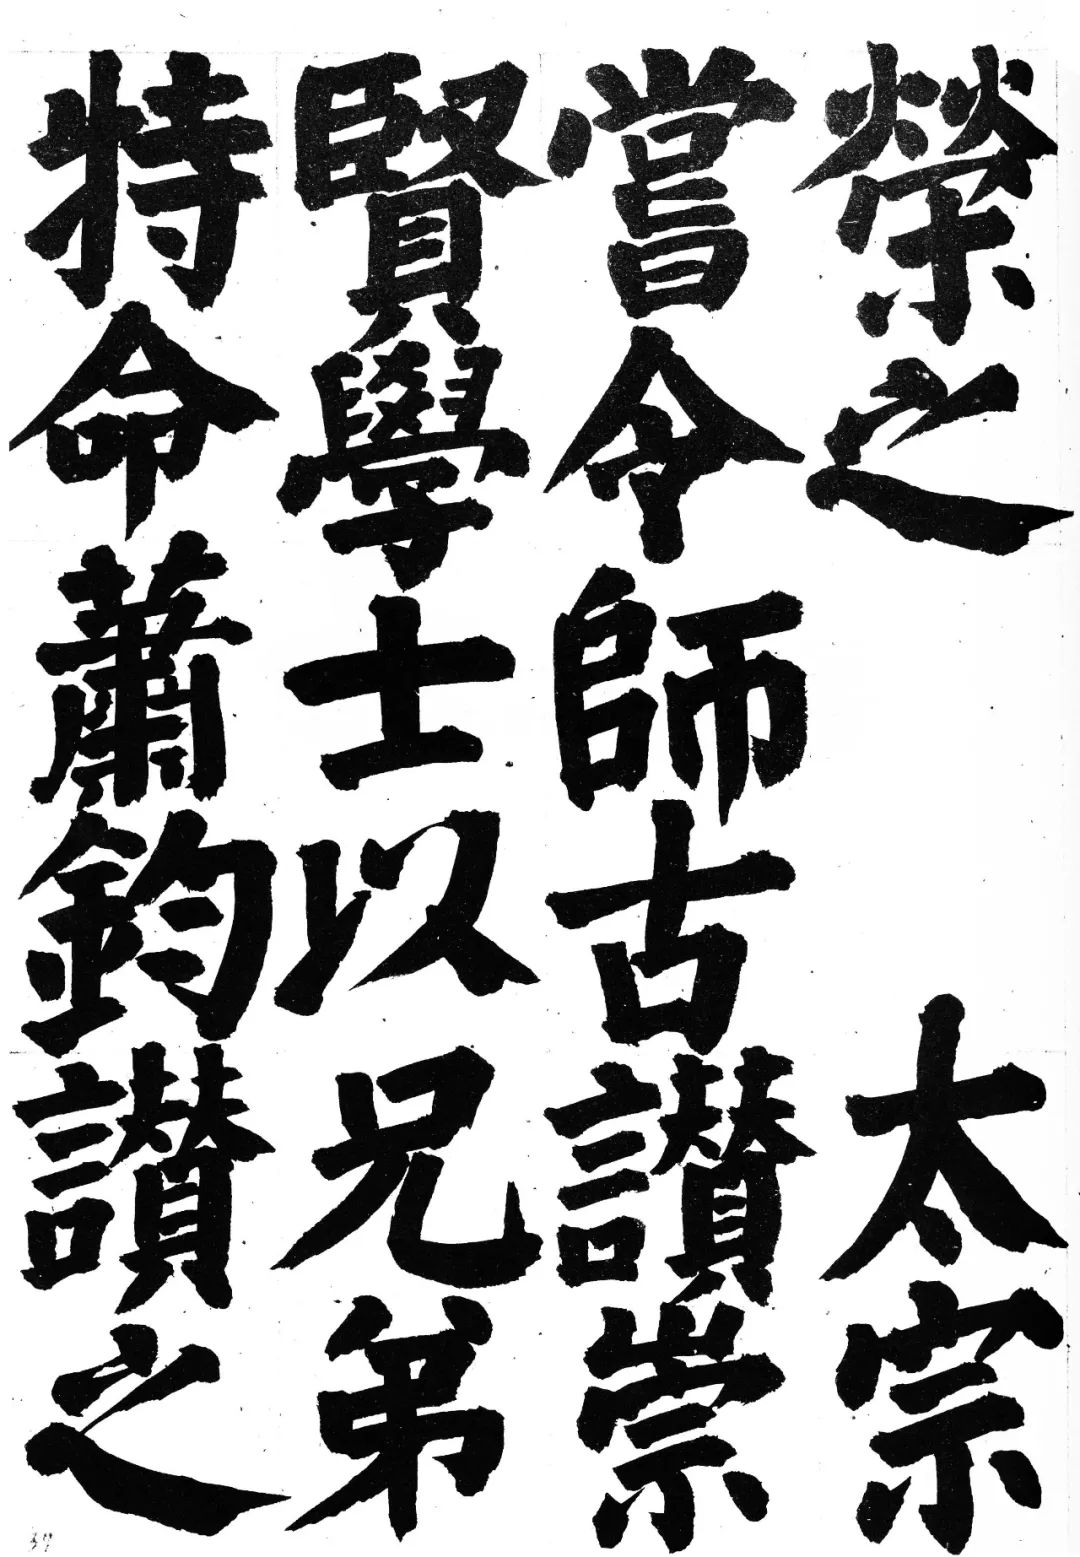 榮之 太宗
嘗令師古讃崇
賢學士以兄弟
特命蕭鈞讃之
37